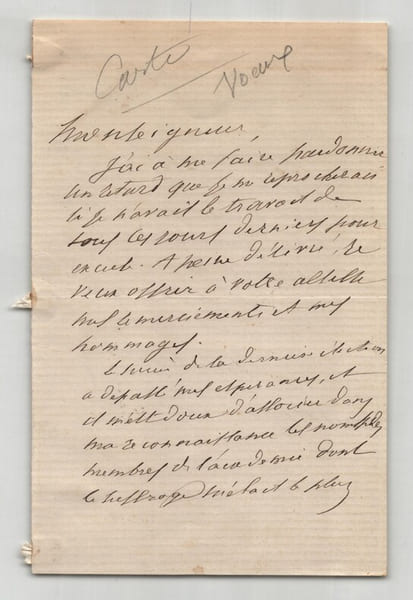 Carte
Voeux
Monseigneur,
J'ai à me faire pardonner
un retard que je me reprocherais
si je n'avais le travail de
tous les jours derniers pour
excuse. A peine délivré, je
veux offrir à votre altesse
mes remerciements et mes
hommages.
Le succès de la dernière élection
a dépassé mes espérances, et
il m'est doux d'associer dans
ma reconnaissance les noms des
membres de l'académie dont
le suffrage m'était le plus